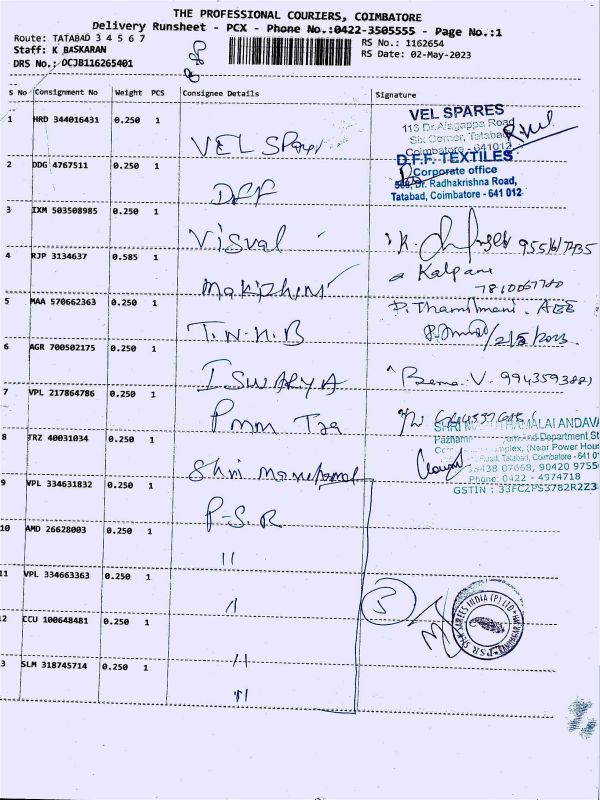 THE PROFESSIONAL COURIERS, COIMBATORE
Delivery Runsheet - PCX - Phone No.:0422-3505555 - Page No.:1
Route: TATABAD 3 4 5 6 7
Staff: K BASKARAN
DRS No.: DCJB116265401
RS No.: 1162654
RS Date: 02-May-2023
S No Consignment No Weight PCS Consignee Details Signature
1 HRD 344016431 0.250 1 VEL Spares
VEL SPARES
113 Dr.Alagappa Road
Six Corner, Tatabad
Coimbatore - 641012
2 DDG 4767511 0.250 1 DFF
D.F.F. TEXTILES
Corporate office
Dr. Radhakrishna Road,
Tatabad, Coimbatore - 641 012
3 IXM 503508985 0.250 1
K.
4 RJP 3134637 0.585 1
Kalpana
5 MAA 570662363 0.250 1 T.N.H.B
P. Thamilmani. AEE
2/5/2023
6 AGR 700502175 0.250 1 ISWARYA
V. 9943593881
7 VPL 217864786 0.250 1 Pmm
8 TRZ 40031034 0.250 1 Shri
SHRI
Department St
(Near Power Hous
Road, Tatabad, Coimbatore - 641 01
07668, 90420 9755
Phone: 0422 - 4974718
GSTIN : 33FCZPS3782R2Z3
9 VPL 334631832 0.250 1 P.S.R
10 AMD 26628003 0.250 1 11
11 VPL 334663363 0.250 1 11
3
2 CCU 100648481 0.250 1 11
PSR SILK SAREES INDIA (P) LTD
3 SLM 318745714 0.250 1 11